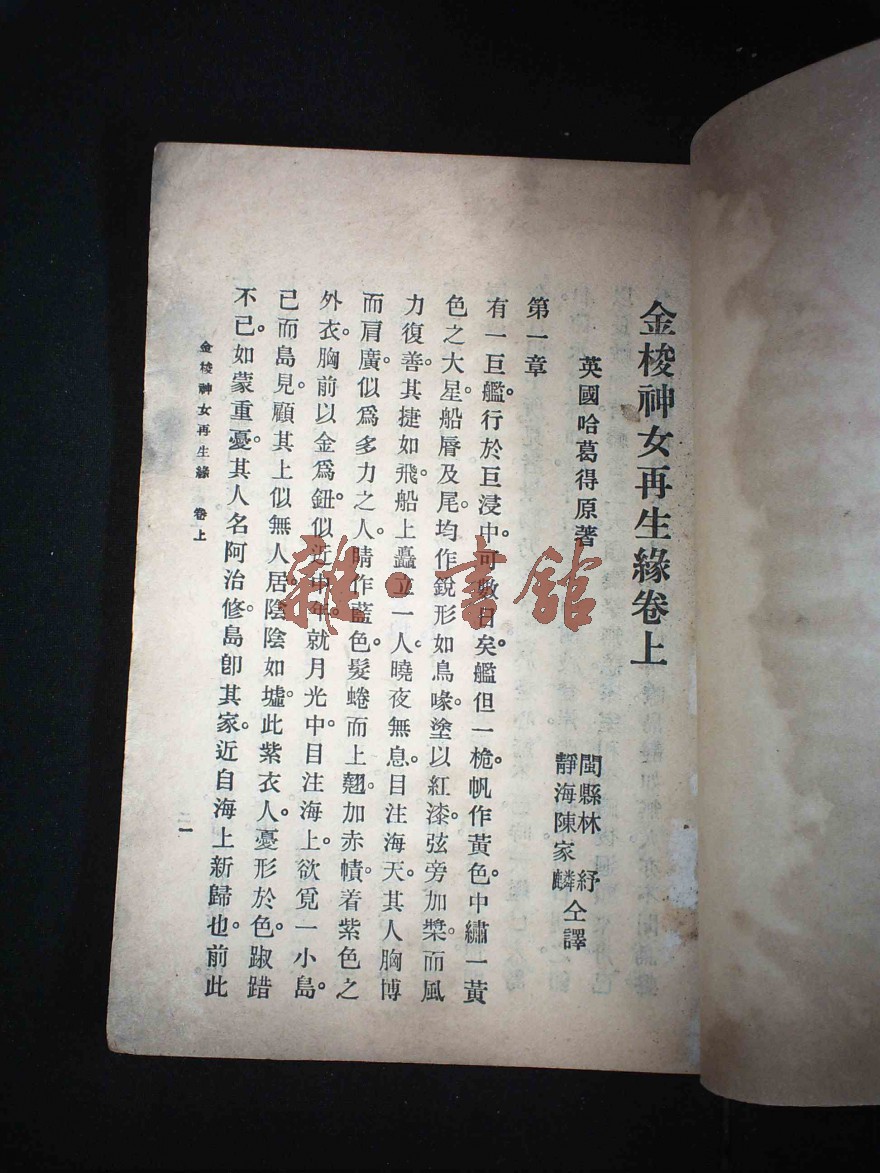 金梭神女再生緣卷上
英國哈葛得原著
閩縣林　紓
靜海陳家麟
仝譯
第一章
有一巨艦。行於巨浸中。可數日矣。艦但一桅。帆作黃色。中繡一黃
色之大星。船脣及尾。均作銳形。如鳥喙。塗以紅漆。弦旁加槳。而風
力復善。其捷如飛。船上矗立一人。曉夜無息。目注海天。其人胸博
而肩廣。似爲多力之人。睛作藍色。髮蜷而上翹。加赤幘。着紫色之
外衣。胸前以金爲鈕。似近中年。就月光中。目注海上。欲覓一小島。
己而島見。顧其上似無人居。陰陰如墟。此紫衣人。憂形於色。踧踖
不已。如蒙重憂。其人名阿治修。島卽其家。近自海上新歸也。前此
金梭神女再生緣　卷上
一
雜·書舘